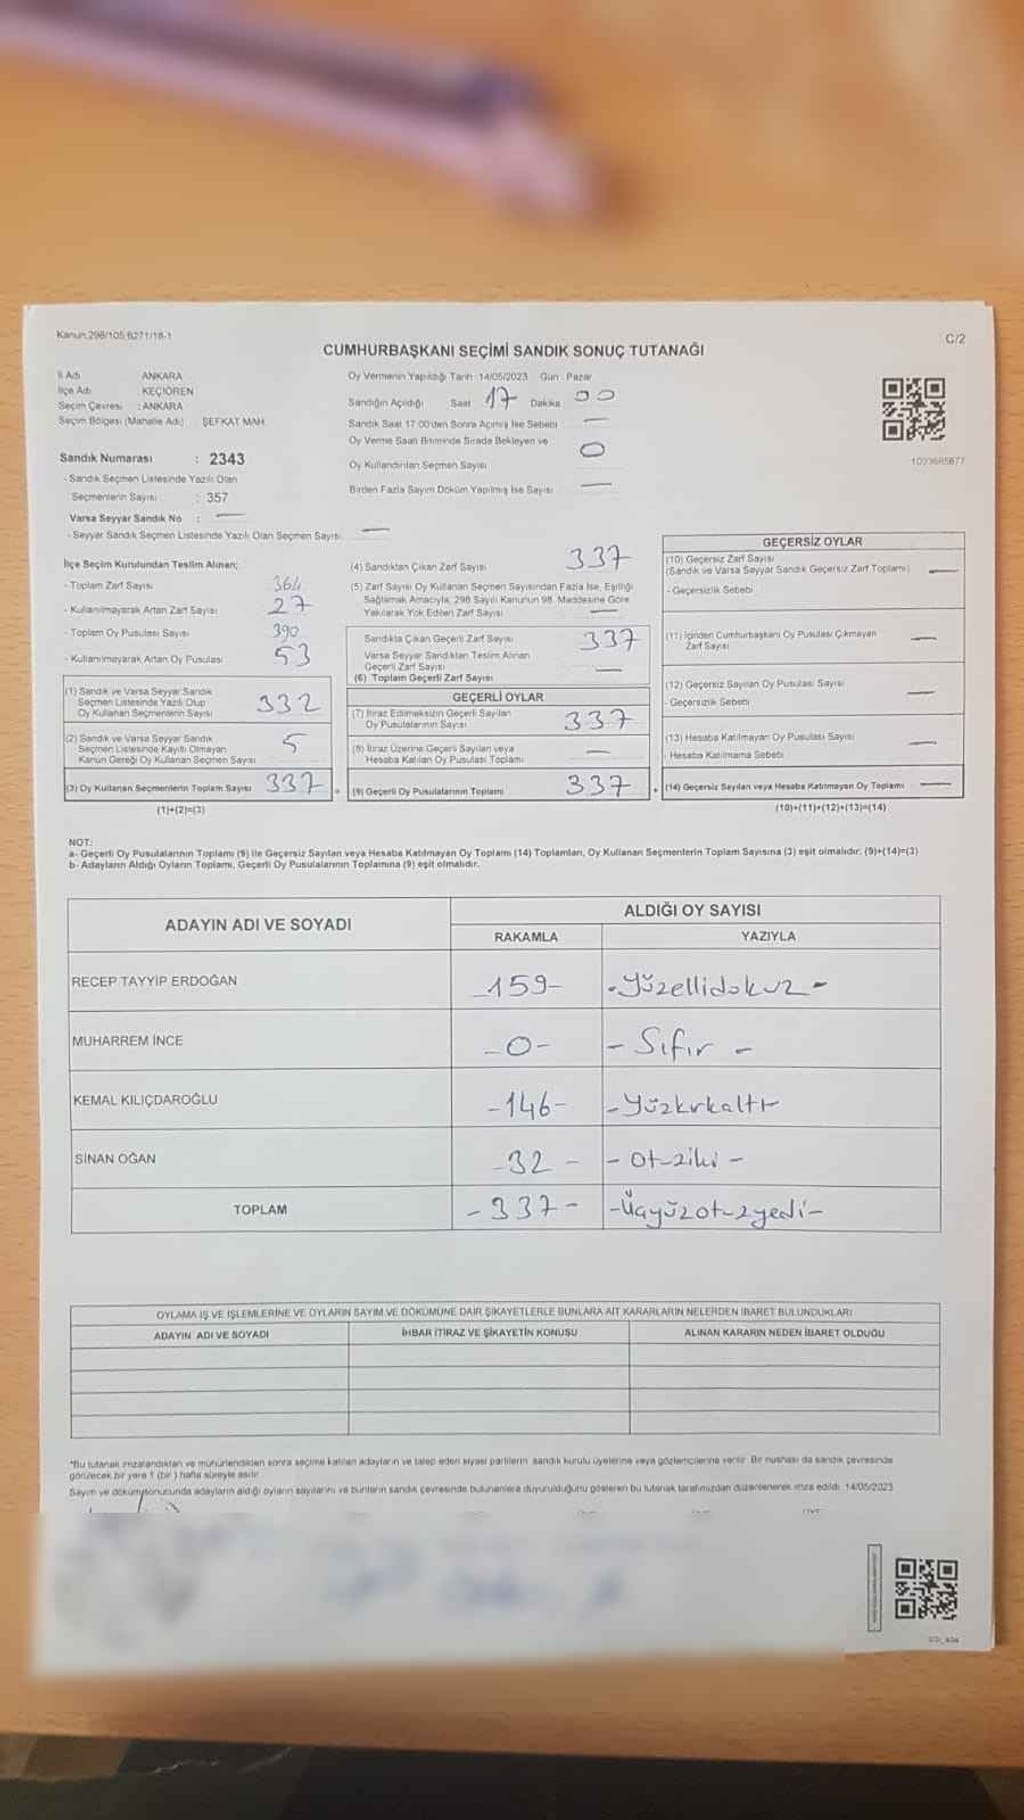 Kanun:298/105,6271/18-1
C/2
CUMHURBAŞKANI SEÇİMİ SANDIK SONUÇ TUTANAĞI
İl Adı : ANKARA
İlçe Adı : KEÇİÖREN
Seçim Çevresi : ANKARA
Seçim Bölgesi (Mahalle Adı) : ŞEFKAT MAH.
Sandık Numarası : 2343
- Sandık Seçmen Listesinde Yazılı Olan
Seçmenlerin Sayısı : 357
Varsa Seyyar Sandık No : —
- Seyyar Sandık Seçmen Listesinde Yazılı Olan Seçmen Sayısı —
Oy Vermenin Yapıldığı Tarih : 14/05/2023 Gün : Pazar
Sandığın Açıldığı Saat 17 Dakika 00
Sandık Saat 17:00'den Sonra Açılmış İse Sebebi —
Oy Verme Saati Bitiminde Sırada Bekleyen ve
Oy Kullandırılan Seçmen Sayısı 0
Birden Fazla Sayım Döküm Yapılmış İse Sayısı —
İlçe Seçim Kurulundan Teslim Alınan;
- Toplam Zarf Sayısı 364
- Kullanılmayarak Artan Zarf Sayısı 27
- Toplam Oy Pusulası Sayısı 390
- Kullanılmayarak Artan Oy Pusulası 53
(1) Sandık ve Varsa Seyyar Sandık
Seçmen Listesinde Yazılı Olup
Oy Kullanan Seçmenlerin Sayısı 332
(2) Sandık ve Varsa Seyyar Sandık
Seçmen Listesinde Kayıtlı Olmayan
Kanun Gereği Oy Kullanan Seçmen Sayısı 5
(3) Oy Kullanan Seçmenlerin Toplam Sayısı 337
(1)+(2)=(3)
(4) Sandıktan Çıkan Zarf Sayısı 337
(5) Zarf Sayısı Oy Kullanan Seçmen Sayısından Fazla İse, Eşitliği
Sağlamak Amacıyla; 298 Sayılı Kanunun 98. Maddesine Göre
Yakılarak Yok Edilen Zarf Sayısı —
Sandıkta Çıkan Geçerli Zarf Sayısı 337
Varsa Seyyar Sandıktan Teslim Alınan
Geçerli Zarf Sayısı —
(6) Toplam Geçerli Zarf Sayısı
GEÇERLİ OYLAR
(7) İtiraz Edilmeksizin Geçerli Sayılan
Oy Pusulalarının Sayısı 337
(8) İtiraz Üzerine Geçerli Sayılan veya
Hesaba Katılan Oy Pusulası Toplamı —
(9) Geçerli Oy Pusulalarının Toplamı 337
GEÇERSİZ OYLAR
(10) Geçersiz Zarf Sayısı
(Sandık ve Varsa Seyyar Sandık Geçersiz Zarf Toplamı) —
- Geçersizlik Sebebi
(11) İçinden Cumhurbaşkanı Oy Pusulası Çıkmayan
Zarf Sayısı —
(12) Geçersiz Sayılan Oy Pusulası Sayısı —
- Geçersizlik Sebebi
(13) Hesaba Katılmayan Oy Pusulası Sayısı —
- Hesaba Katılmama Sebebi
(14) Geçersiz Sayılan veya Hesaba Katılmayan Oy Toplamı —
(10)+(11)+(12)+(13)=(14)
NOT:
a- Geçerli Oy Pusulalarının Toplamı (9) ile Geçersiz Sayılan veya Hesaba Katılmayan Oy Toplamı (14) Toplamları, Oy Kullanan Seçmenlerin Toplam Sayısına (3) eşit olmalıdır. (9)+(14)=(3)
b- Adayların Aldığı Oyların Toplamı, Geçerli Oy Pusulalarının Toplamına (9) eşit olmalıdır.
ADAYIN ADI VE SOYADI ALDIĞI OY SAYISI
RAKAMLA YAZIYLA
RECEP TAYYİP ERDOĞAN -159- -Yüzellidokuz-
MUHARREM İNCE -0- -Sıfır-
KEMAL KILIÇDAROĞLU -146- -Yüzkırkaltı-
SİNAN OĞAN -32- -Otuziki-
TOPLAM -337- -Üçyüzotuzyedi-
OYLAMA İŞ VE İŞLEMLERİNE VE OYLARIN SAYIM VE DÖKÜMÜNE DAİR ŞİKAYETLERLE BUNLARA AİT KARARLARIN NELERDEN İBARET BULUNDUKLARI
ADAYIN ADI VE SOYADI İHBAR İTİRAZ VE ŞİKAYETİN KONUSU ALINAN KARARIN NEDEN İBARET OLDUĞU
*Bu tutanak imzalandıktan ve mühürlendikten sonra seçime katılan adayların ve talep eden siyasi partilerin sandık kurulu üyelerine veya gözlemcilerine verilir. Bir nüshası da sandık çevresinde
görülecek bir yere 1 (bir ) hafta süreyle asılır.
Sayım ve döküm sonucunda adayların aldığı oyların sayılarını ve bunların sandık çevresinde bulunanlara duyurulduğunu gösteren bu tutanak tarafımızdan düzenlenerek imza edildi. 14/05/2023